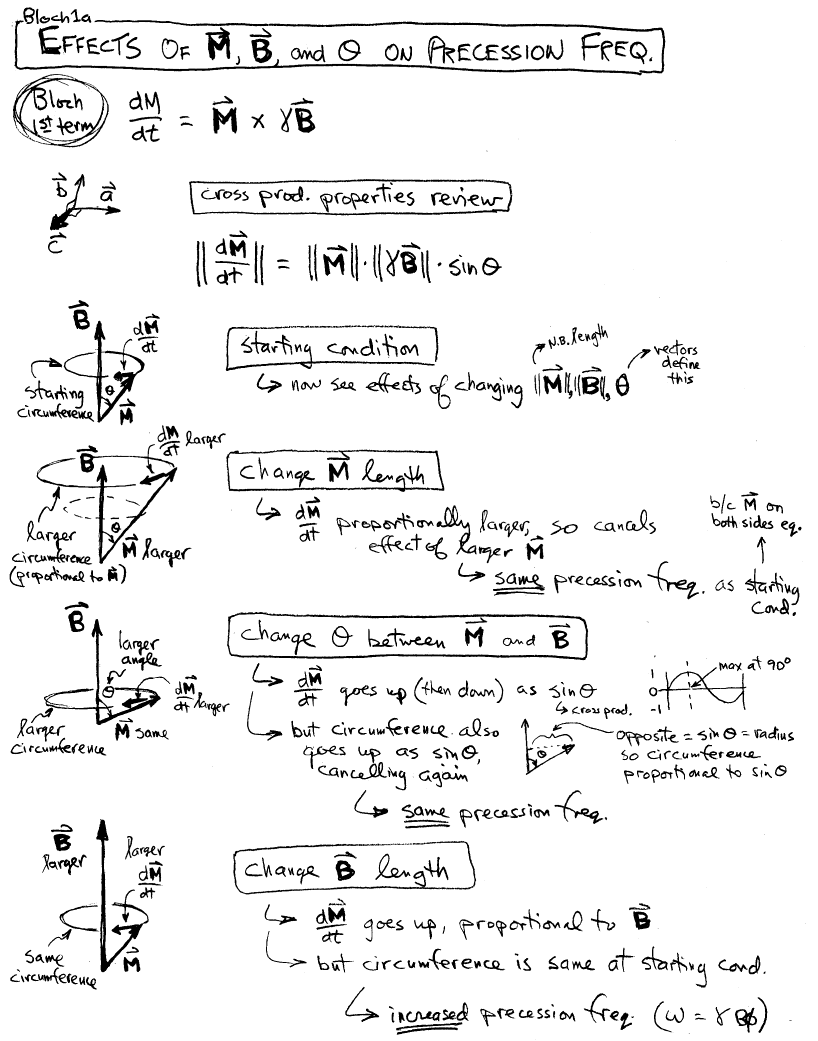 Bloch1a
EFFECTS OF M⃗, B⃗, and θ ON PRECESSION FREQ.
Bloch
1st term
dM/dt = M⃗ × γB⃗
b⃗ a⃗
c⃗
cross prod. properties review
||dM⃗/dt|| = ||M⃗||·||γB⃗||·sinθ
B⃗
dM⃗/dt
θ
M⃗
starting
circumference
starting condition
N.B. length
vectors
define
this
↳ now see effects of changing ||M⃗||,||B⃗||, θ
B⃗
dM⃗/dt larger
θ
M⃗ larger
larger
circumference
(proportional to M⃗)
change M⃗ length
↳ dM⃗/dt proportionally larger, so cancels
effect of larger M⃗
b/c M⃗ on
both sides eq.
↳ same precession freq. as starting
cond.
B⃗
larger
angle
θ
dM⃗/dt larger
M⃗ same
larger
circumference
change θ between M⃗ and B⃗
↳ dM⃗/dt goes up (then down) as sinθ
↳ cross prod.
max at 90°
0
-1
↳ but circumference also
goes up as sinθ,
cancelling again
θ
opposite = sinθ = radius
so circumference
proportional to sinθ
↳ same precession freq.
B⃗
larger
larger
dM⃗/dt
M⃗
same
circumference
change B⃗ length
↳ dM⃗/dt goes up, proportional to B⃗
↳ but circumference is same at starting cond.
↳ increased precession freq. (ω = γB